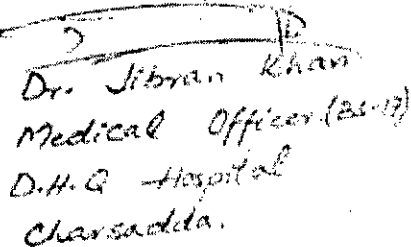 Dr. Jibran Khan
Medical Officer (BS-17)
D.H.Q Hospital
Charsadda.